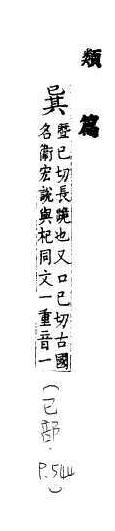 類篇
㠱 暨己切長跪也又口己切古國
名衞宏說與杞同文一重音一
(己部. P.544)